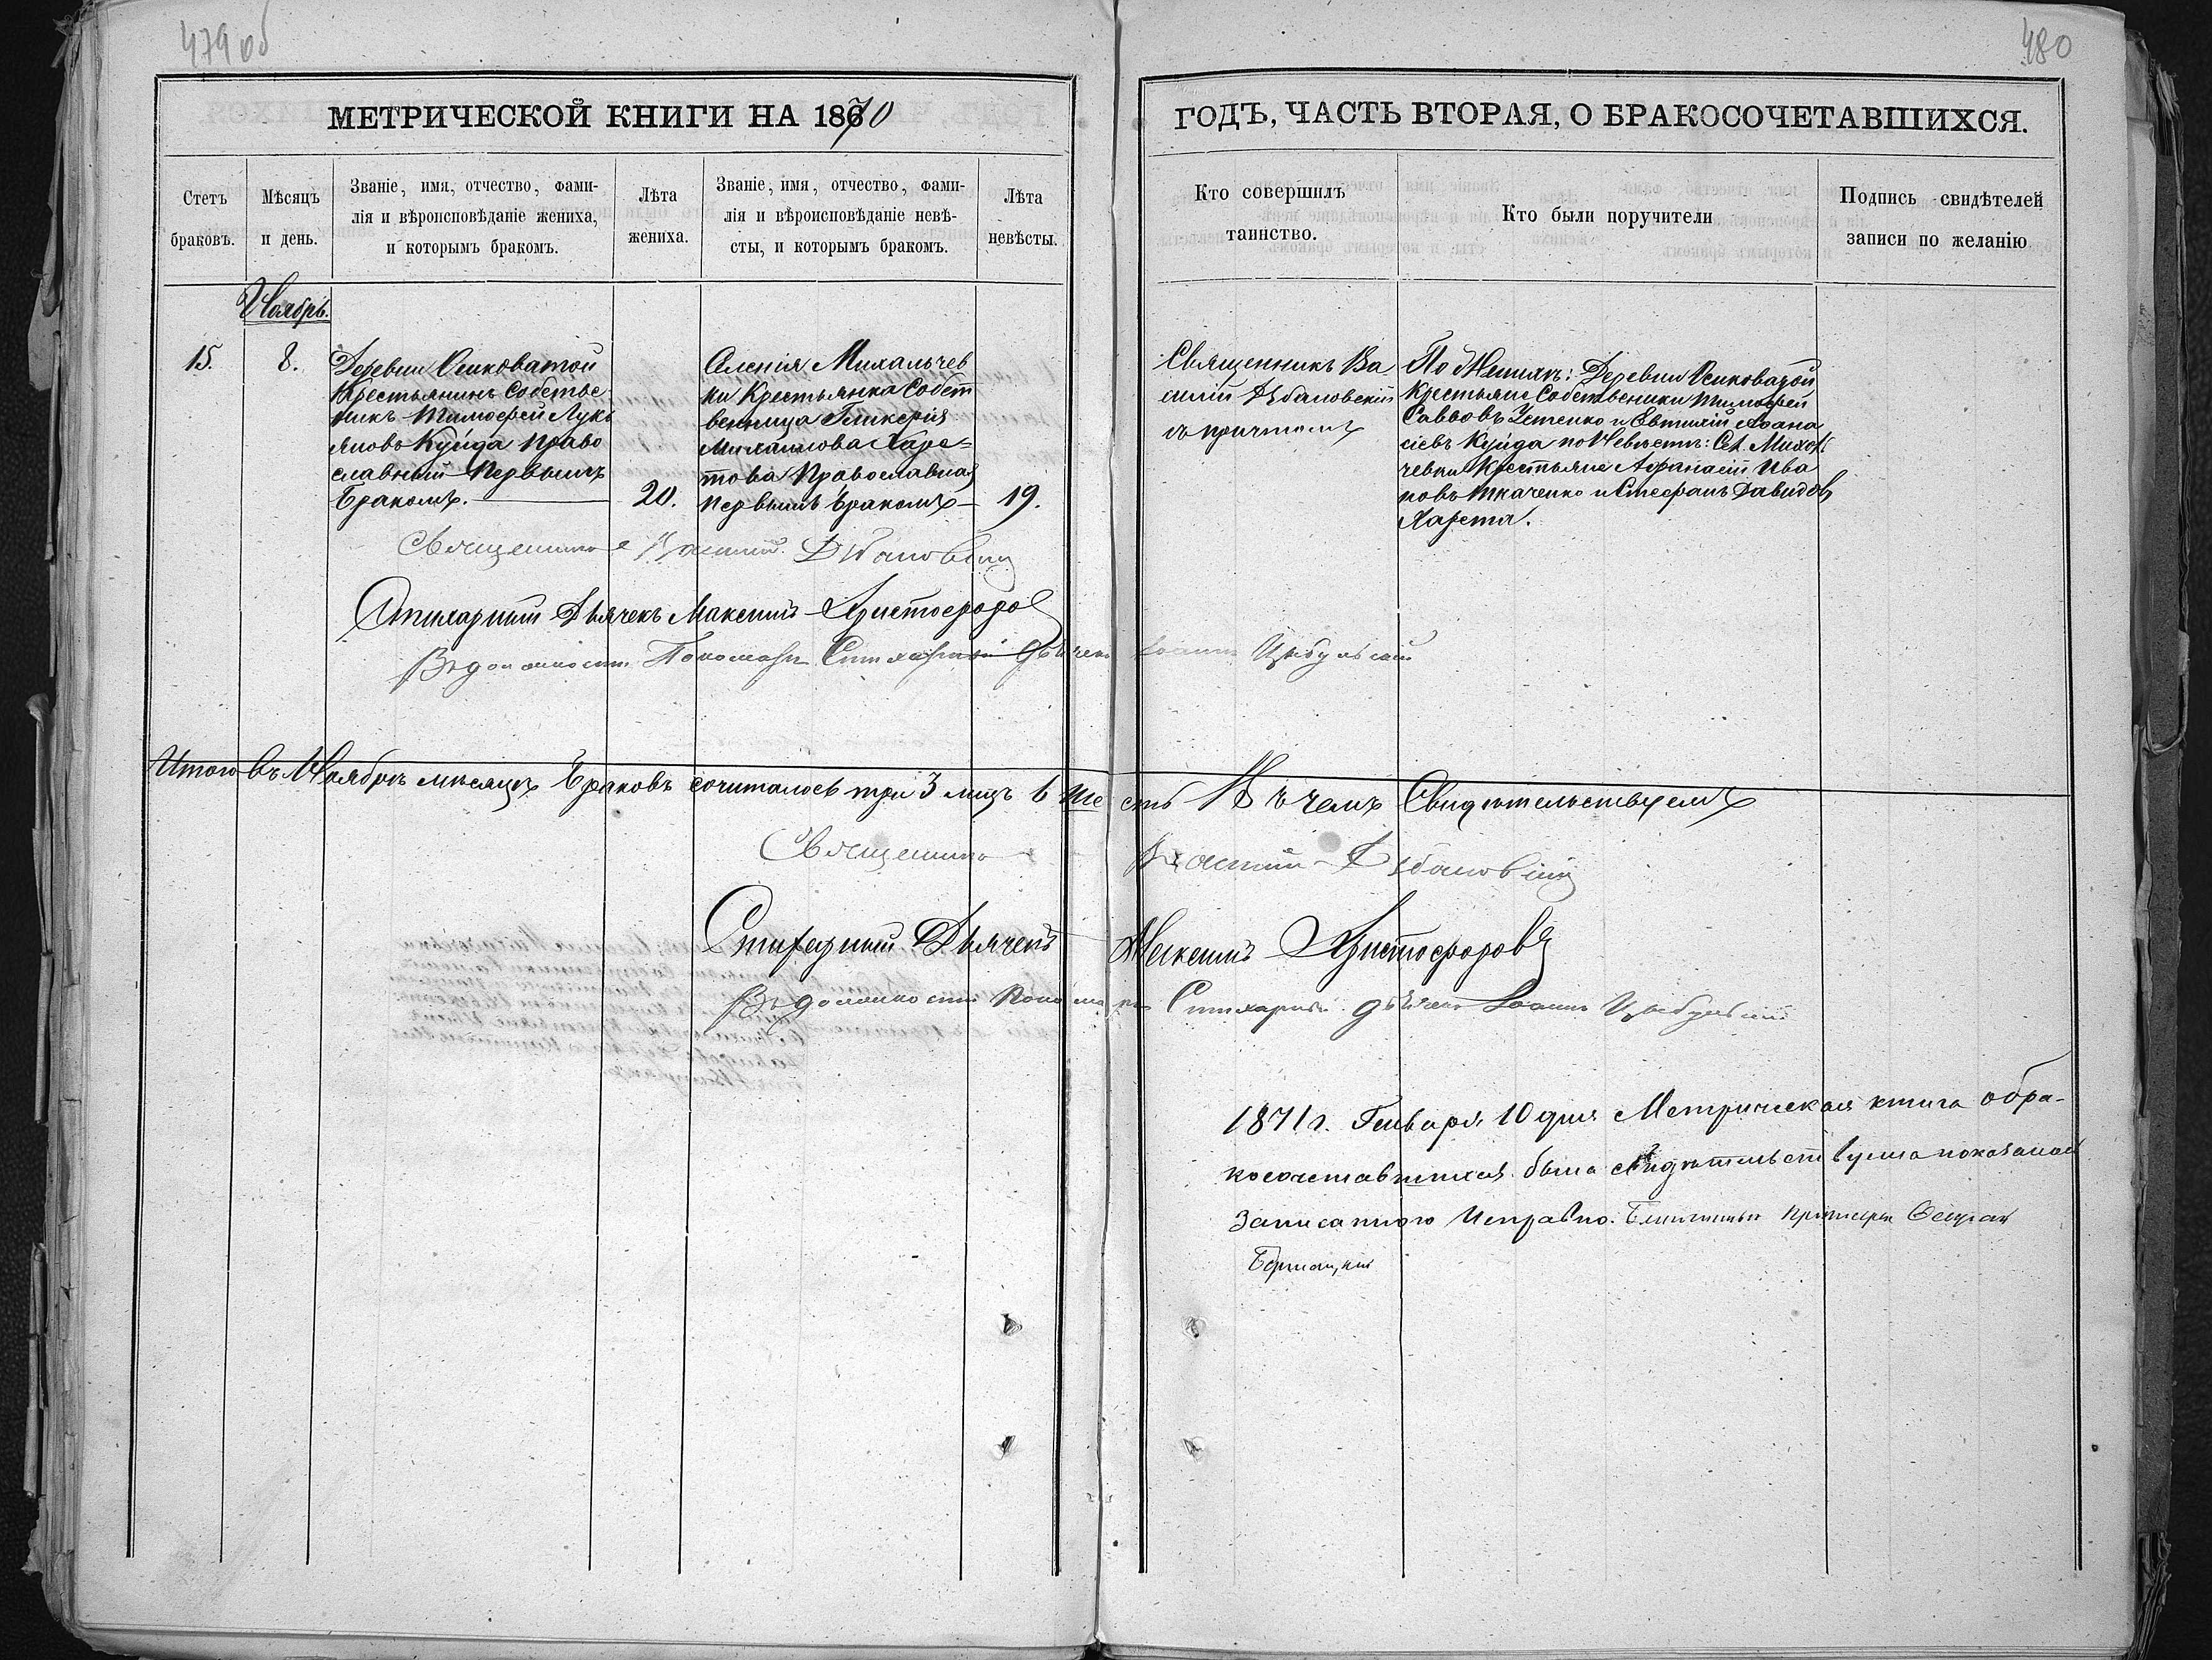 479 об
480
МЕТРИЧЕСКОЙ КНИГИ НА 1870
ГОДЪ, ЧАСТЬ ВТОРАЯ, О БРАКОСОЧЕТАВШИХСЯ.
Счетъ браковъ.
Мѣсяцъ и день.
Званіе, имя, отчество, фами-
лія и вѣроисповѣданіе жениха,
и которымъ бракомъ.
Лѣта
жениха.
Званіе, имя, отчество, фами-
лія и вѣроисповѣданіе невѣ-
сты, и которымъ бракомъ.
Лѣта
невѣсты.
Кто совершилъ
таинство.
Кто были поручители
Подпись свидѣтелей
записи по желанію
Ноябрь.
15.
8.
Деревни Осиковатой
Крестьянинъ Собстве
никъ Тимофей Лукь
яновъ Куйда право
славный Первымъ
Бракомъ.
20.
Селенія Михальчев
ки Крестьянка Собст
венница Гликерія
Михаилова Харе=
това Православная
первымъ бракомъ
19.
Священникъ Ва
силій Дѣбаловскій
съ причтомъ
По Женихѣ: Деревни Осиковатой
Крестьяне Собственики Тимофей
Саввовъ Устенко и Евтихій Афана
сіевъ Куйда по Невѣстѣ: Сел. Михал
чевки Крестьяне Афанасій Ива
новъ Ткаченко и Стефанъ Давидовъ
Харета.
Священникъ Василій
Стихарный Дьячекъ Максимъ Христофоровъ
Въ должности Пономаря Стихарный дьячекъ Іоаннъ Цыбульскій
Итого въ Ноябрѣ мѣсяцѣ браковъ сочиталось три 3 лицъ 6 ше
сть Въ чемъ Свидѣтельствуемъ
Священникъ Василій
Стихарный Дьячекъ Максимъ Христофоровъ
Въ должности Пономаря Стихарный дьячекъ Іоаннъ Цыбульскій
1871 г. Генваря 10 дня Метрическая книга о бра-
косочетавшихся была
записанного Исправно.